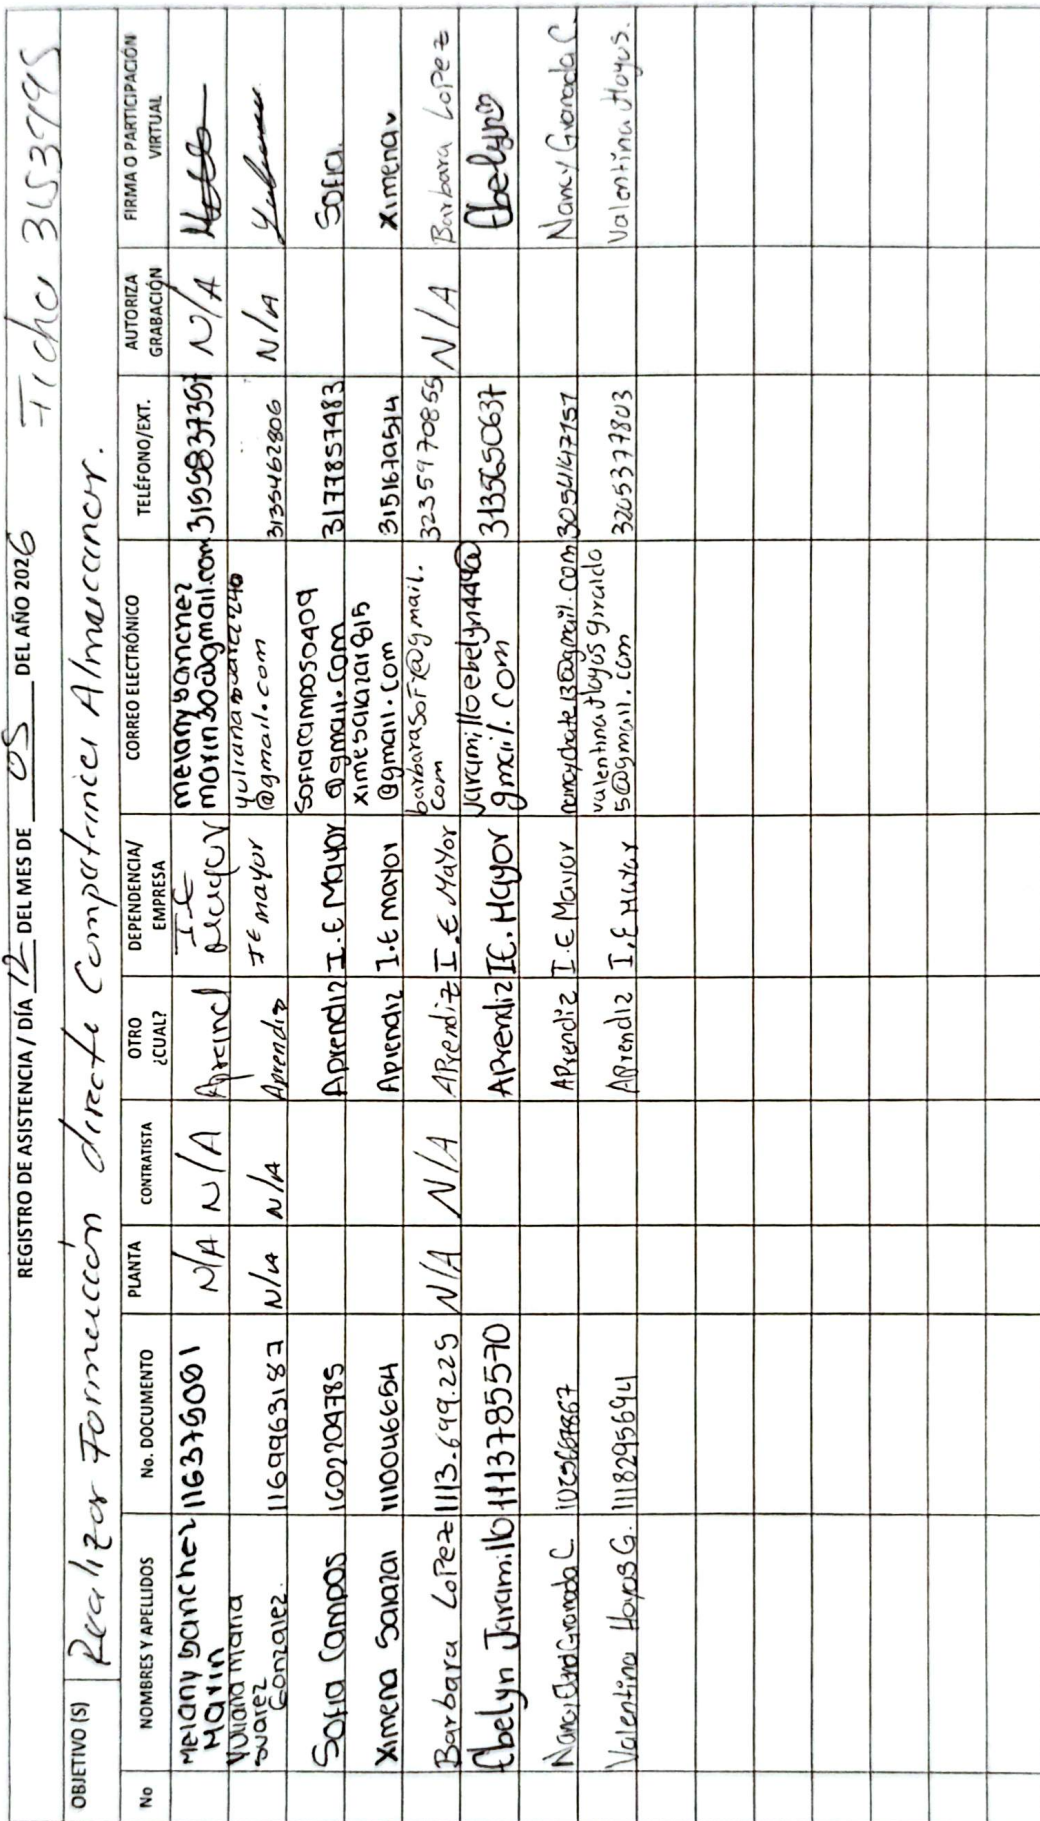 REGISTRO DE ASISTENCIA / DÍA 12 DEL MES DE 05 DEL AÑO 2026
Ficha
OBJETIVO (S) Realizar Formación directa Competencia Almacenar.
No NOMBRES Y APELLIDOS No. DOCUMENTO PLANTA CONTRATISTA OTRO ¿CUAL? DEPENDENCIA/ EMPRESA CORREO ELECTRÓNICO TELÉFONO/EXT. AUTORIZA GRABACIÓN FIRMA O PARTICIPACIÓN VIRTUAL
Melany Sanchez Marin N/A N/A I.E Mayor melanysanchez marin30@gmail.com N/A
Yuliana Maria Suarez Gonzalez. 1169963187 N/A N/A Aprendiz IE mayor @gmail.com 3135462806 N/A
Sofia Campos Aprendiz I.E Mayor Sofiacampos0409 @gmail.com 3177857483 Sofia.
Ximena Salazar Aprendiz I.E mayor @gmail.com Ximena
Barbara Lopez 1113.699.225 N/A N/A APrendiz I.E Mayor barbarasofi@gmail. Com 3235970855 N/A Barbara Lopez
Ebelyn Jaramillo 1113785570 APrendiz IE. Mayor jaramilloebelyn444@ gmail.com 3135650637 Ebelyn♡
Granada C. APrendiz I.E Mayor 3054147157 Nancy Granada C.
Valentina Hoyos G. 1118295694 APrendiz I.E Mayor valentinahoyos giraldo 5@gmail.com 3205377803 Valentina Hoyos.